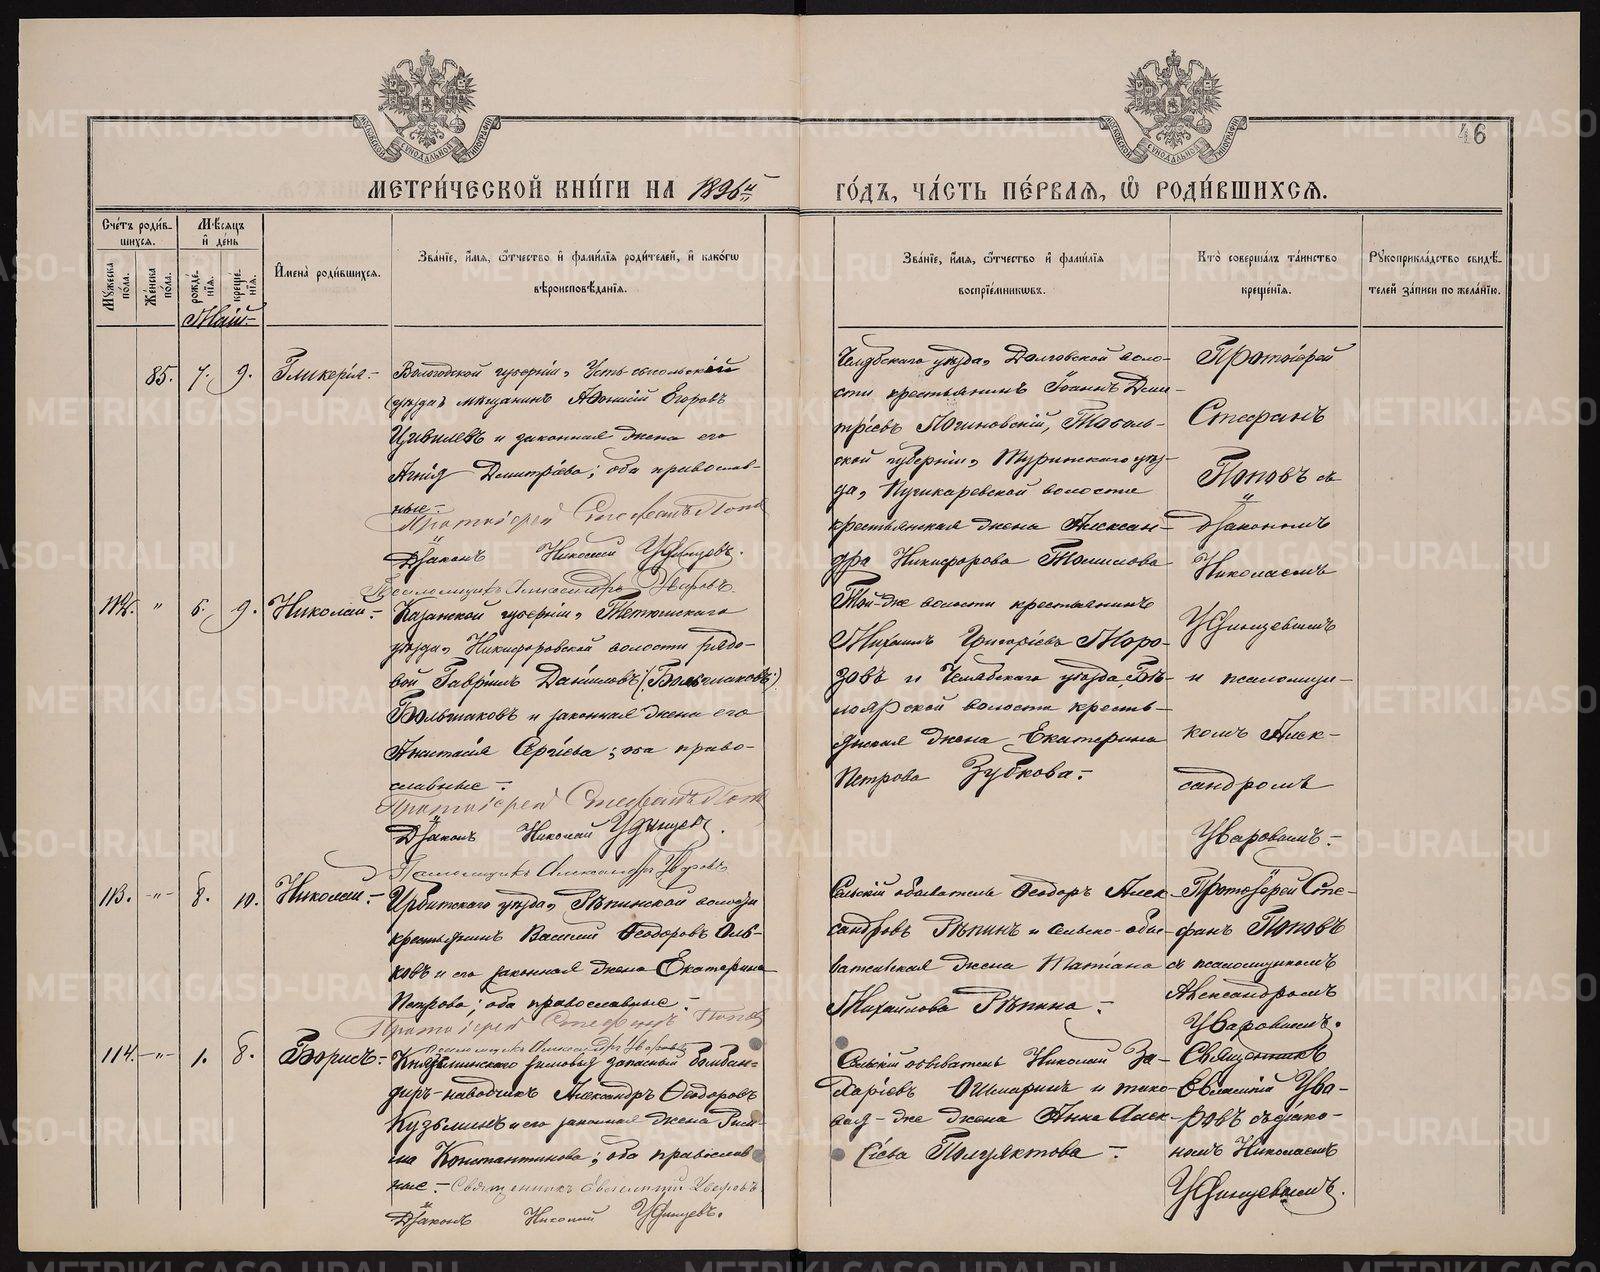 46
МЕТРИ́ЧЕСКОЙ КНИ́ГИ НА 1896й ГО́ДЪ, ЧА́СТЬ ПЕ́РВАЯ, Ѽ РОДИ́ВШИХСѦ.
Сче́тъ роди́в-
шихся.
Мѣ́сяцъ
и҆ де́нь
Мꙋ́жеска
по́ла.
Же́нска
по́ла.
рожде́-
нїѧ.
креще́-
нїѧ.
И҆мена̀ роди́вшихсѧ.
Зва́нїе, и҆́мѧ, ѻ҆́тчество и҆ фами́лїѧ роди́телей, и҆ како́гѡ
вѣроисповѣ́данїѧ.
Зва́нїе, и҆́мѧ, ѻ҆́тчество и҆ фами́лїѧ
воспрїе́мникѡвъ.
Кто̀ соверша́лъ та́инство
креще́нїѧ.
Рꙋкоприкла́дство свидѣ́-
телей за́писи по жела́нїю.
Май.-
85. 7. 9. Гликерія.-
Вологодской губерніи, Усть сысольскій
уѣзда мѣщанинъ Егоровъ
и законная жена его
Дмитріева; оба православ-
ные.-
Протоіерей Стефанъ Поповъ
Діаконъ Николай Удинцевъ.
Псаломщикъ Александръ Уваровъ.
Челябскаго уѣзда, Долговской воло-
сти крестьянинъ Іоаннъ Дми-
тріевъ Логиновскій, Тоболь-
ской губерніи, Туринскаго уѣз-
да, волости
крестьянская жена Алексан-
дра Никифорова Томилова
Протоіерей
Стефанъ
Поповъ съ
діакономъ
Николаемъ
Удинцевымъ
и псаломщи-
комъ Алек-
сандромъ
Уваровымъ.-
112. " 6. 9. Николай.-
Казанской губерніи, Тетюшскаго
уѣзда, Никифоровской волости рядо-
вой Гавріилъ Даніиловъ (Большаковъ)
Большаковъ и законная жена его
Анастасія Сергіева; оба право-
славные.-
Протоіерей Стефанъ Поповъ
Діаконъ Николай Удинцевъ.
Псаломщикъ Александръ Уваровъ.
Той-же волости крестьянинъ
Михаилъ Григоріевъ Моро-
зовъ и Челябскаго уѣзда, Бѣ-
лоярской волости кресть-
янская жена Екатерина
Петрова Зубкова.-
113. -"- 8. 10. Николай.-
Ирбитскаго уѣзда, Рѣпинской волости
крестьянинъ Василій Ѳеодоровъ Оль-
ковъ и его законная жена Екатерина
Петрова; оба православные.-
Протоіерей Стефанъ Поповъ
Псаломщикъ Александръ Уваровъ
Сельскій обыватель Ѳеодоръ Алек-
сандровъ Рѣпинъ и сельско-обы-
вательская жена Татіана
Михайлова Рѣпина.-
Протоіерей Сте-
фанъ Поповъ
съ псаломщикомъ
Александромъ
Уваровымъ.
114. -"- 1. 8. Борисъ.-
запасный бомбан-
диръ-наводчикъ Александръ Ѳеодоровъ
Кузьминъ и его законная жена
Константинова; оба православ
ные.- Священникъ Евлампій Уваровъ
Діаконъ Николай Удинцевъ.
Сельскій обыватель Николай За-
харіевъ Ошмаринъ и тако-
вая-же жена Анна Алек-
сіева Полуяктова.-
Священникъ
Евлампій Ува-
ровъ съ діако-
номъ Николаемъ
Удинцевымъ.